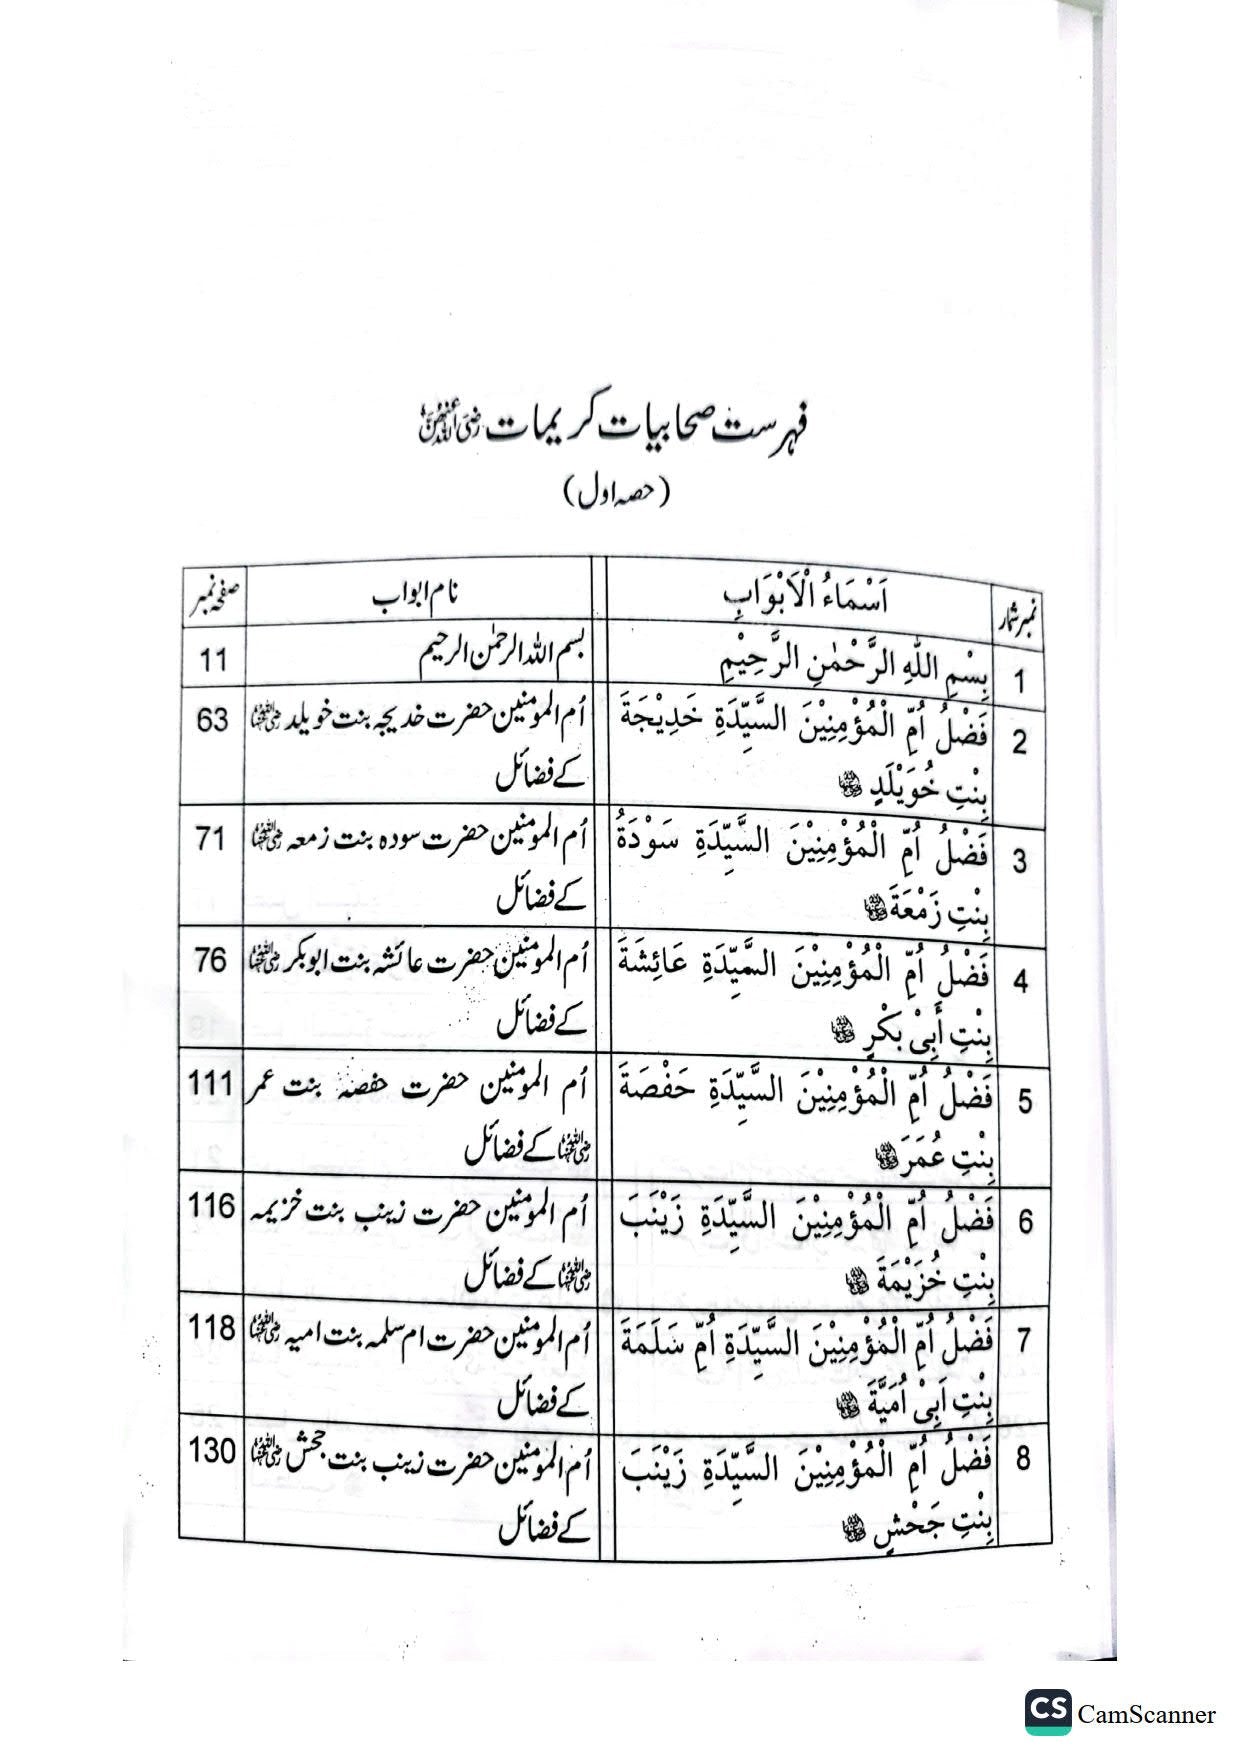 فہرست صحابیات کریمات رضی اللہ عنهن
(حصہ اول)
نمبر شمار اَسْمَاءُ الْاَبْوَابِ نام ابواب صفحہ نمبر
1 بِسْمِ اللّٰهِ الرَّحْمٰنِ الرَّحِيْمِ بسم اللہ الرحمٰن الرحیم 11
2 فَضْلُ اُمِّ الْمُؤْمِنِيْنَ السَّيِّدَةِ خَدِيْجَةَ اُم المومنین حضرت خدیجہ بنت خویلد رضی اللہ عنہا 63
بِنْتِ خُوَيْلَدٍ رضی اللہ عنہا کے فضائل
3 فَضْلُ اُمِّ الْمُؤْمِنِيْنَ السَّيِّدَةِ سَوْدَةُ اُم المومنین حضرت سودہ بنت زمعہ رضی اللہ عنہا 71
بِنْتِ زَمْعَةَ رضی اللہ عنہا کے فضائل
4 فَضْلُ اُمِّ الْمُؤْمِنِيْنَ السَّيِّدَةِ عَائِشَةَ اُم المومنین حضرت عائشہ بنت ابوبکر رضی اللہ عنہا 76
بِنْتِ أَبِىْ بَكْرٍ رضی اللہ عنہا کے فضائل
5 فَضْلُ اُمِّ الْمُؤْمِنِيْنَ السَّيِّدَةِ حَفْصَةَ اُم المومنین حضرت حفصہ بنت عمر 111
بِنْتِ عُمَرَ رضی اللہ عنہا رضی اللہ عنہا کے فضائل
6 فَضْلُ اُمِّ الْمُؤْمِنِيْنَ السَّيِّدَةِ زَيْنَبَ اُم المومنین حضرت زینب بنت خزیمہ 116
بِنْتِ خُزَيْمَةَ رضی اللہ عنہا رضی اللہ عنہا کے فضائل
7 فَضْلُ اُمِّ الْمُؤْمِنِيْنَ السَّيِّدَةِ اُمِّ سَلَمَةَ اُم المومنین حضرت ام سلمہ بنت امیہ رضی اللہ عنہا 118
بِنْتِ اَبِىْ اُمَيَّةَ رضی اللہ عنہا کے فضائل
8 فَضْلُ اُمِّ الْمُؤْمِنِيْنَ السَّيِّدَةِ زَيْنَبَ اُم المومنین حضرت زینب بنت جحش رضی اللہ عنہا 130
بِنْتِ جَحْشٍ رضی اللہ عنہا کے فضائل
CS CamScanner